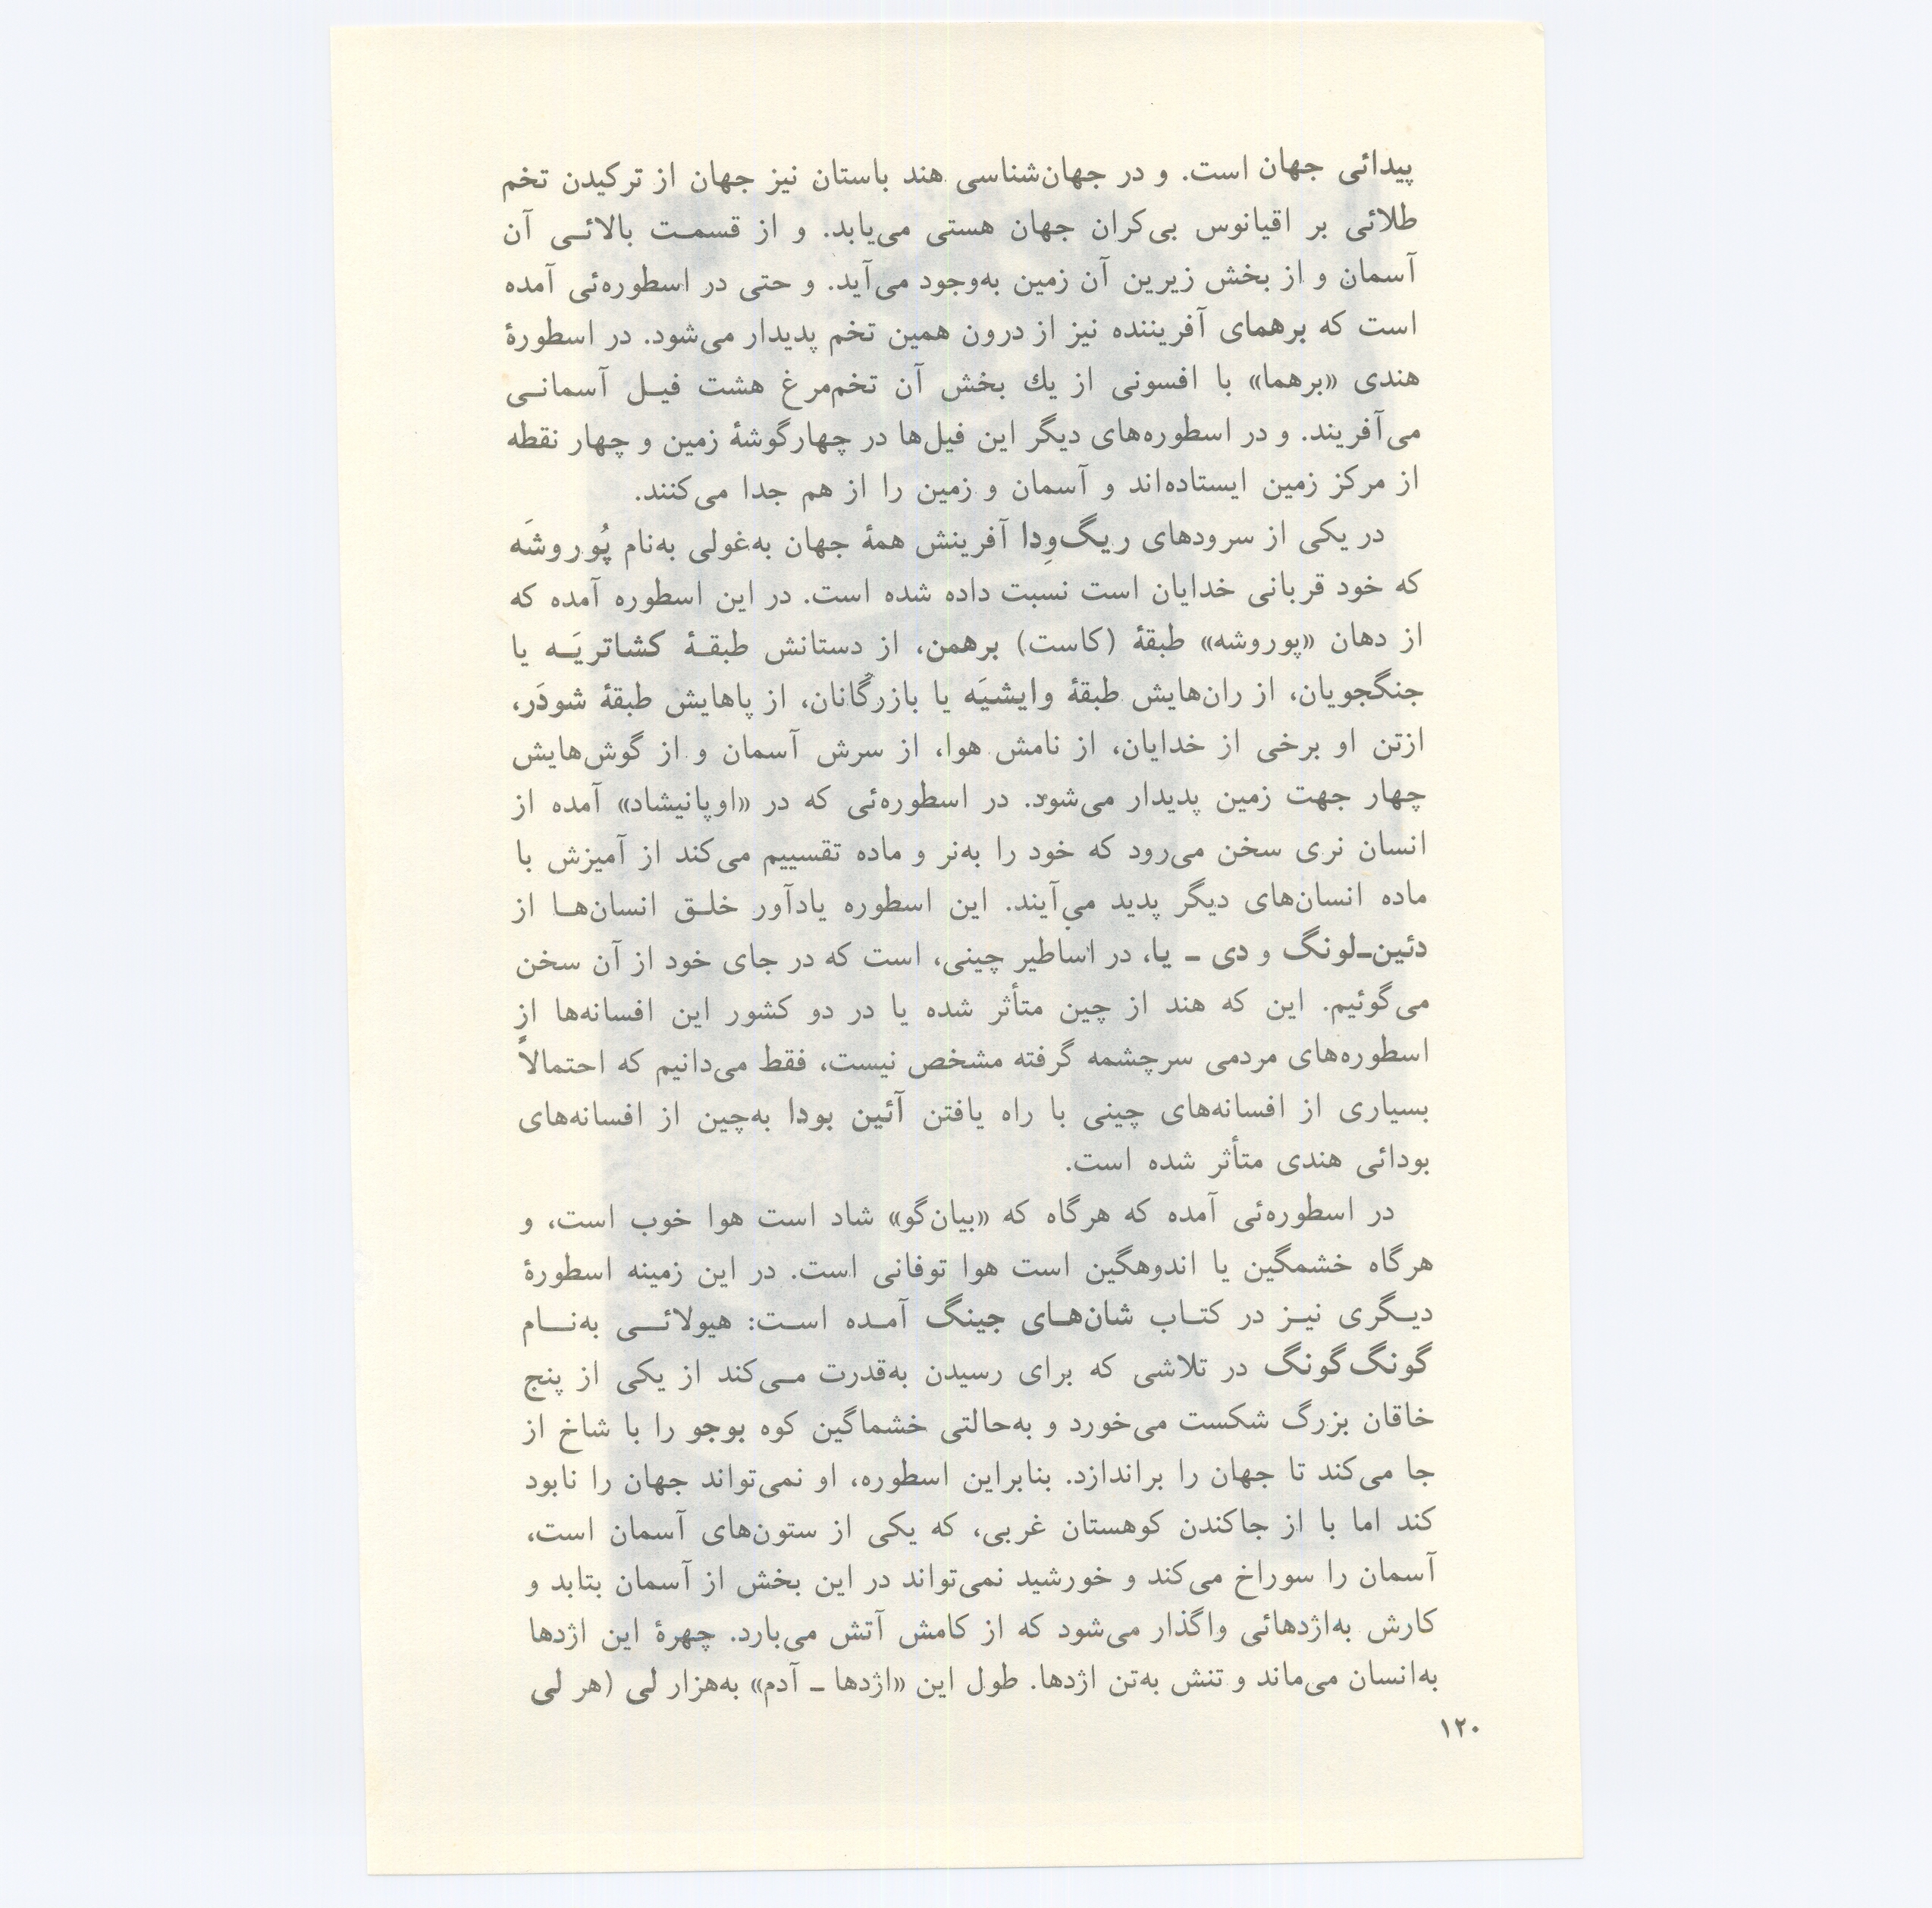 پیدائی جهان است. و در جهان‌شناسی هند باستان نیز جهان از ترکیدن تخم
طلائی بر اقیانوس بی‌کران جهان هستی می‌یابد. و از قسمت بالائی آن
آسمان و از بخش زیرین آن زمین به‌وجود می‌آید. و حتی در اسطوره‌ئی آمده
است که برهمای آفریننده نیز از درون همین تخم پدیدار می‌شود. در اسطورهٔ
هندی «برهما» با افسونی از یك بخش آن تخم‌مرغ هشت فیل آسمانی
می‌آفریند. و در اسطوره‌های دیگر این فیل‌ها در چهارگوشهٔ زمین و چهار نقطه
از مرکز زمین ایستاده‌اند و آسمان و زمین را از هم جدا می‌کنند.
در یکی از سرودهای ریگ‌وِدا آفرینش همهٔ جهان به‌غولی به‌نام پُوروشَه
که خود قربانی خدایان است نسبت داده شده است. در این اسطوره آمده که
از دهان «پوروشه» طبقهٔ (کاست) برهمن، از دستانش طبقهٔ کشاتریَه یا
جنگجویان، از ران‌هایش طبقهٔ وایشیَه یا بازرگانان، از پاهایش طبقهٔ شودَر،
ازتن او برخی از خدایان، از نامش هوا، از سرش آسمان و از گوش‌هایش
چهار جهت زمین پدیدار می‌شود. در اسطوره‌ئی که در «اوپانیشاد» آمده از
انسان نری سخن می‌رود که خود را به‌نر و ماده تقسییم می‌کند از آمیزش با
ماده انسان‌های دیگر پدید می‌آیند. این اسطوره یادآور خلق انسان‌ها از
دئین‌ـ‌لونگ و دی ـ یا، در اساطیر چینی، است که در جای خود از آن سخن
می‌گوئیم. این که هند از چین متأثر شده یا در دو کشور این افسانه‌ها از
اسطوره‌های مردمی سرچشمه گرفته مشخص نیست، فقط می‌دانیم که احتمالاً
بسیاری از افسانه‌های چینی با راه یافتن آئین بودا به‌چین از افسانه‌های
بودائی هندی متأثر شده است.
در اسطوره‌ئی آمده که هرگاه که «بیان‌گو» شاد است هوا خوب است، و
هرگاه خشمگین یا اندوهگین است هوا توفانی است. در این زمینه اسطورهٔ
دیگری نیز در کتاب شان‌های جینگ آمده است: هیولائی به‌نام
گونگ‌گونگ در تلاشی که برای رسیدن به‌قدرت می‌کند از یکی از پنج
خاقان بزرگ شکست می‌خورد و به‌حالتی خشماگین کوه بوجو را با شاخ از
جا می‌کند تا جهان را براندازد. بنابراین اسطوره، او نمی‌تواند جهان را نابود
کند اما با از جاکندن کوهستان غربی، که یکی از ستون‌های آسمان است،
آسمان را سوراخ می‌کند و خورشید نمی‌تواند در این بخش از آسمان بتابد و
کارش به‌اژدهائی واگذار می‌شود که از کامش آتش می‌بارد. چهرهٔ این اژدها
به‌انسان می‌ماند و تنش به‌تن اژدها. طول این «اژدها ـ آدم» به‌هزار لی (هر لی
۱۲۰